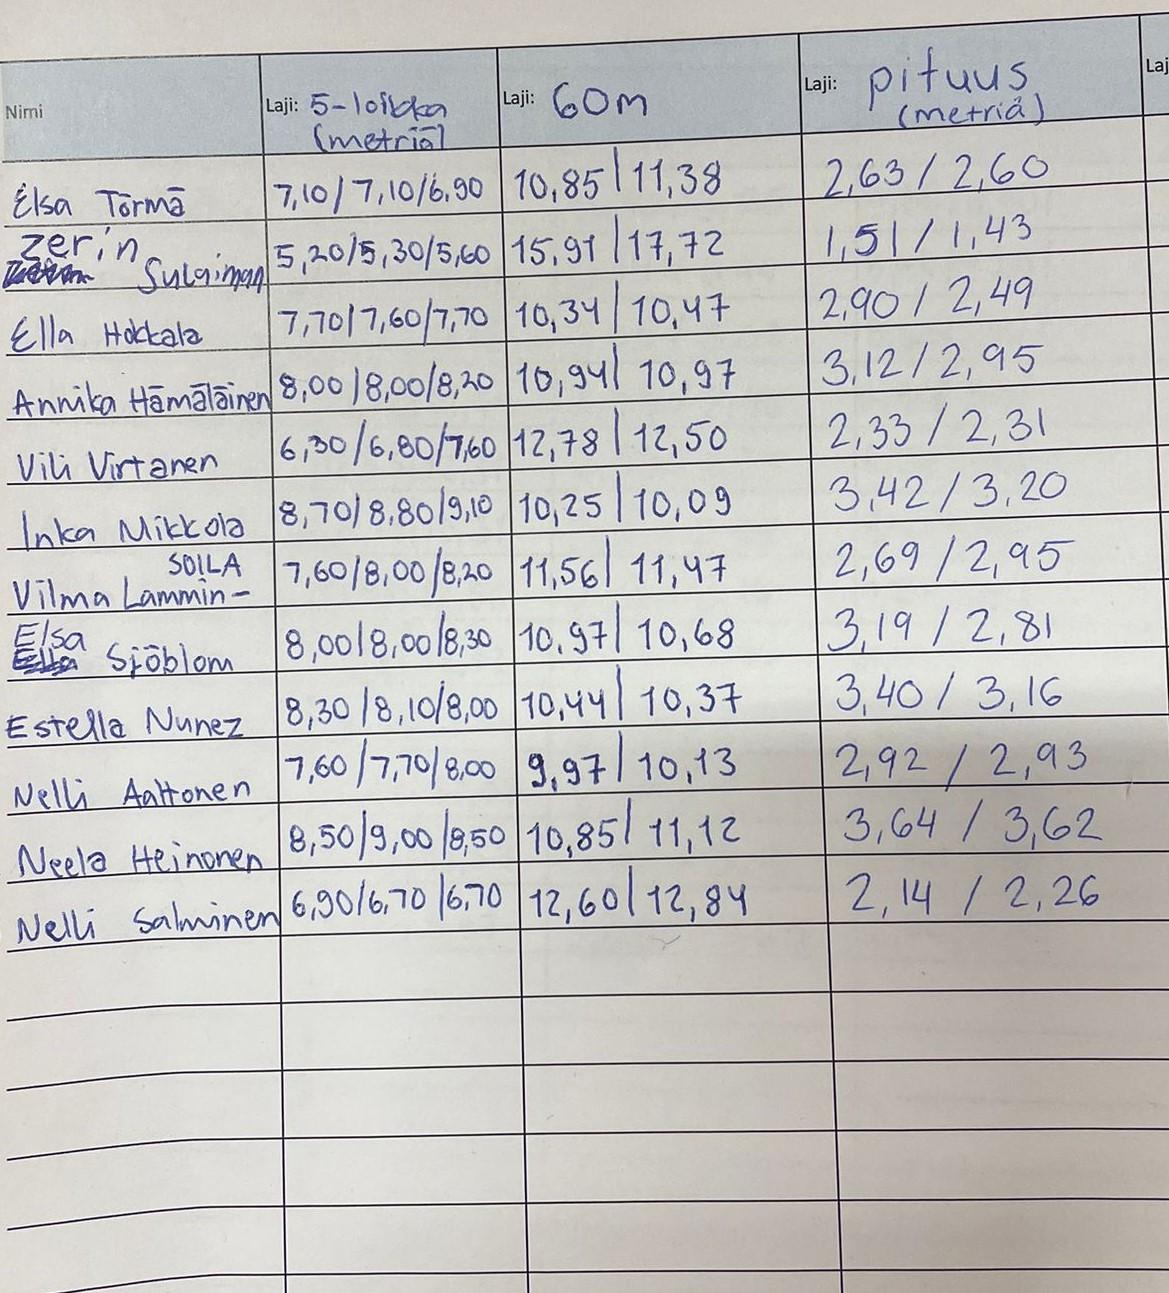 Nimi Laji: 5-loikka Laji: 60m Laji: pituus Laj
(metriä) (metriä)
Elsa Törmä 7,10/7,10/6,90 10,85|11,38 2,63/2,60
Zerin
Sulaiman 5,20/5,30/5,60 15,91|17,72 1,51/1,43
Ella Hokkala 7,70/7,60/7,70 10,34/10,47 2,90/2,49
Annika Hämäläinen 8,00/8,00/8,20 10,94|10,97 3,12/2,95
Vili Virtanen 6,30/6,80/7,60 12,78|12,50 2,33/2,31
Inka Mikkola 8,70/8,80/9,10 10,25|10,09 3,42/3,20
SOILA
Vilma Lammin- 7,60/8,00/8,20 11,56|11,47 2,69/2,95
Elsa
Sjöblom 8,00/8,00/8,30 10,97|10,68 3,19/2,81
Estella Nunez 8,30/8,10/8,00 10,44|10,37 3,40/3,16
Nelli Aaltonen 7,60/7,70/8,00 9,97|10,13 2,92/2,93
Neela Heinonen 8,50/9,00/8,50 10,85|11,12 3,64/3,62
Nelli Salminen 6,90/6,70/6,70 12,60|12,84 2,14/2,26